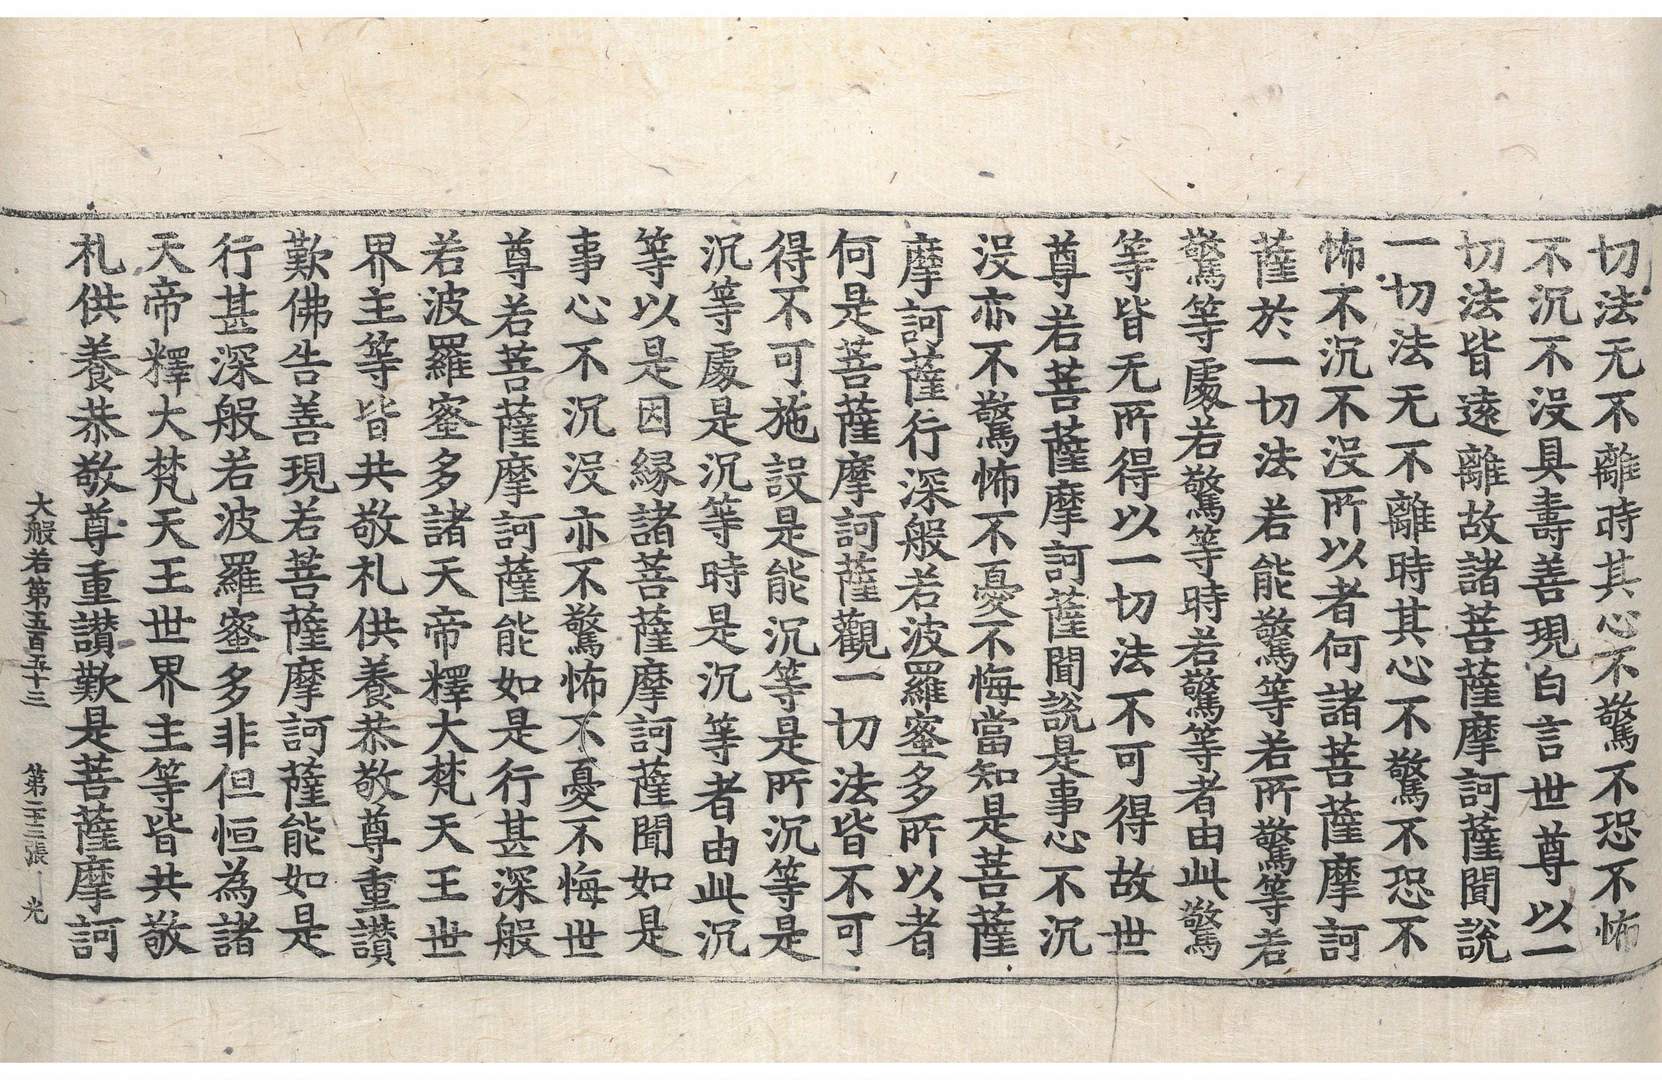 切法无不離時其心不驚不恐不怖
不沉不没具壽善現白言世尊以一
切法皆遠離故諸菩薩摩訶薩聞說
一切法无不離時其心不驚不恐不
怖不沉不没所以者何諸菩薩摩訶
薩於一切法若能驚等若所驚等若
驚等處若驚等時若驚等者由此驚
等皆无所得以一切法不可得故世
尊若菩薩摩訶薩聞說是事心不沉
没亦不驚怖不憂不悔當知是菩薩
摩訶薩行深般若波羅蜜多所以者
何是菩薩摩訶薩觀一切法皆不可
得不可施設是能沉等是所沉等是
沉等處是沉等時是沉等者由此沉
等以是因縁諸菩薩摩訶薩聞如是
事心不沉没亦不驚怖不憂不悔世
尊若菩薩摩訶薩能如是行甚深般
若波羅蜜多諸天帝釋大梵天王世
界主等皆共敬礼供養恭敬尊重讃
歎佛告善現若菩薩摩訶薩能如是
行甚深般若波羅蜜多非但恒為諸
天帝釋大梵天王世界主等皆共敬
礼供養恭敬尊重讃歎是菩薩摩訶
大般若第五百五十三 第二十三張 光